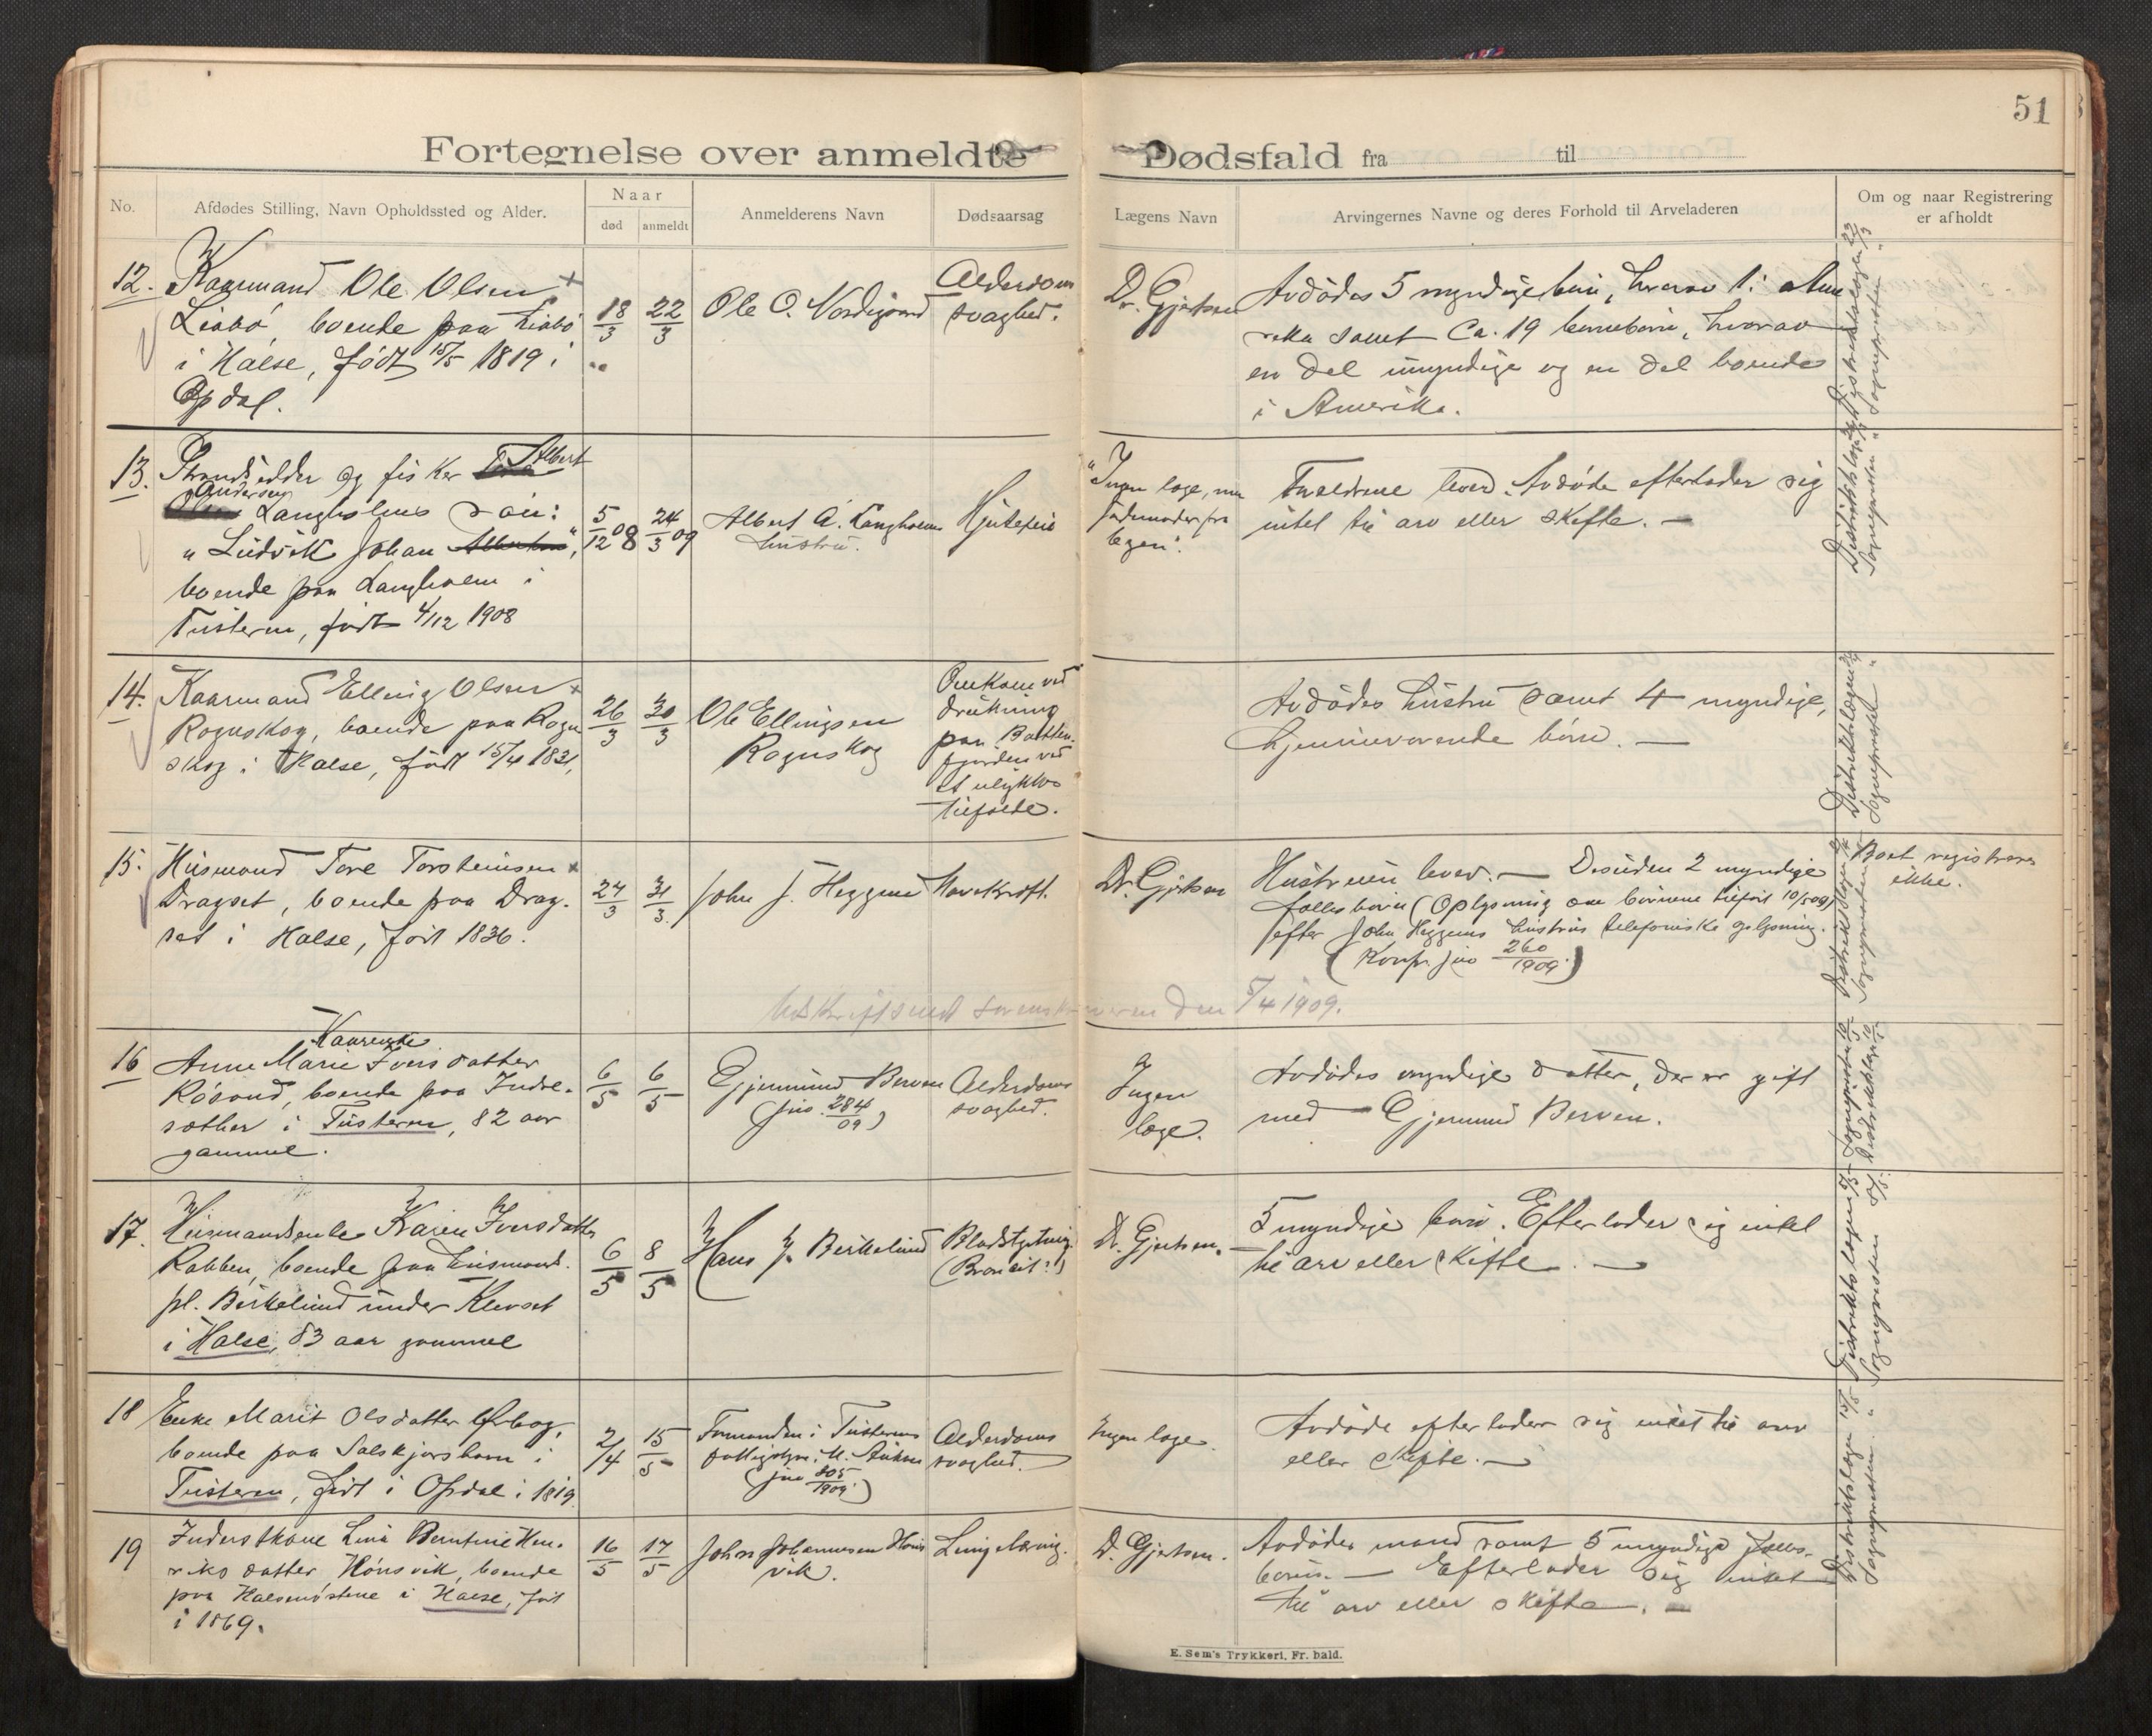 51
Fortegnelse over anmeldte Dødsfald fra til
No.
Afdødes Stilling, Navn Opholdssted og Alder.
Naar
død
anmeldt
Anmelderens Navn
Dødsaarsag
Lægens Navn
Arvingernes Navne og deres Forhold til Arveladeren
Om og naar Registrering
er afholdt
12. Kaarmand Ole Olsen
Liabø, boende paa Liabø
i Halse, født 15/5 1819 i
Opdal.
18/3
22/3
Ole O.
Alderdoms
svaghed.
Dr. Gjertsen
Avdødes 5 myndige børn, hvorav 1 i Ame
rika samt Ca. 19 børnebørn, hvorav
en del umyndige og en del boende
i Amerika.
13. Strandsidder og fisker Albert
Andersen Langholms søn:
"Ludvik Johan
boende paa Langholm i
Tusteren, født 4/12 1908
5/12 08
24/3 09
Albert A. Langholms
hustru.
"Ingen læge, men
jordmoder fra
Forældrene lever. Avdøde efterlader sig
intet til arv eller skifte. —
14. Kaarmand Elling Olsen
Rognskog, boende paa Rogn
skog i Halse, født 15/4 1831,
26/3
30/3
Ole Ellingsen
Rognskog
Omkom ved
drukning
paa Batten-
fjorden ved
et ulykkes
tilfælde.
Avdødes hustru samt 4 myndige,
hjemmeværende børn. —
15. Husmand Tore Torsteinsen
Dragset, boende paa Drag-
set i Halse, født 1836.
27/3
31/3
John J. Heggem
Mavekræft.
Dr. Gjertsen
Hustruen lever. — Desuden 2 myndige
fællesbørn (Oplysning om børnene tilføit 10/5 09)
efter John Heggems hustrus telefoniske oplysning.
(Konf. jno 260/1909)
Boet registreres
ikke.
Utskrift sendt sorenskriveren den 5/4 1909.
16 Kaarenke
Anne Marie Iversdatter
Røsand, boende paa Indre-
sæther i Tusteren, 82 aar
gammel.
6/5
6/5
Gjermund Berven
(jno 284/09)
Alderdoms
svaghed.
Ingen
læge.
Avdødes myndige datter, der er gift
med — Gjermund Berven.
17. Husmandsenke Karen Iversdatter
Rabben, boende paa husmands-
pl. Birkelund under Klevset
i Halse, 83 aar gammel
6/5
8/5
Hans J. Birkelund
Blodstyrtning
Dr. Gjertsen.
5 myndige børn. Efterlader sig intet
til arv eller skifte. —
18 Enke Marit Olsdatter
boende paa Salskjørsholm i
Tusteren, født i Opdal i 1819.
2/4
15/5
Formanden i Tusterens
(jno 305/1909)
Alderdoms
svaghed.
Ingen læge.
Avdøde efterlader sig intet til arv
eller skifte. —
19 Inderstkone Lina Berntine Hen-
riksdatter Hønsvik, boende
paa Halsenøstene i Halse, født
i 1869.
16/5
17/5
John Johannesen Høns
vik.
Lungetæring.
D. Gjertsen.
Avdødes mand samt 5 umyndige fælles-
børn. — Efterlader sig intet
til arv eller skifte. —
E. Sem's Trykkeri, Fr. hald.